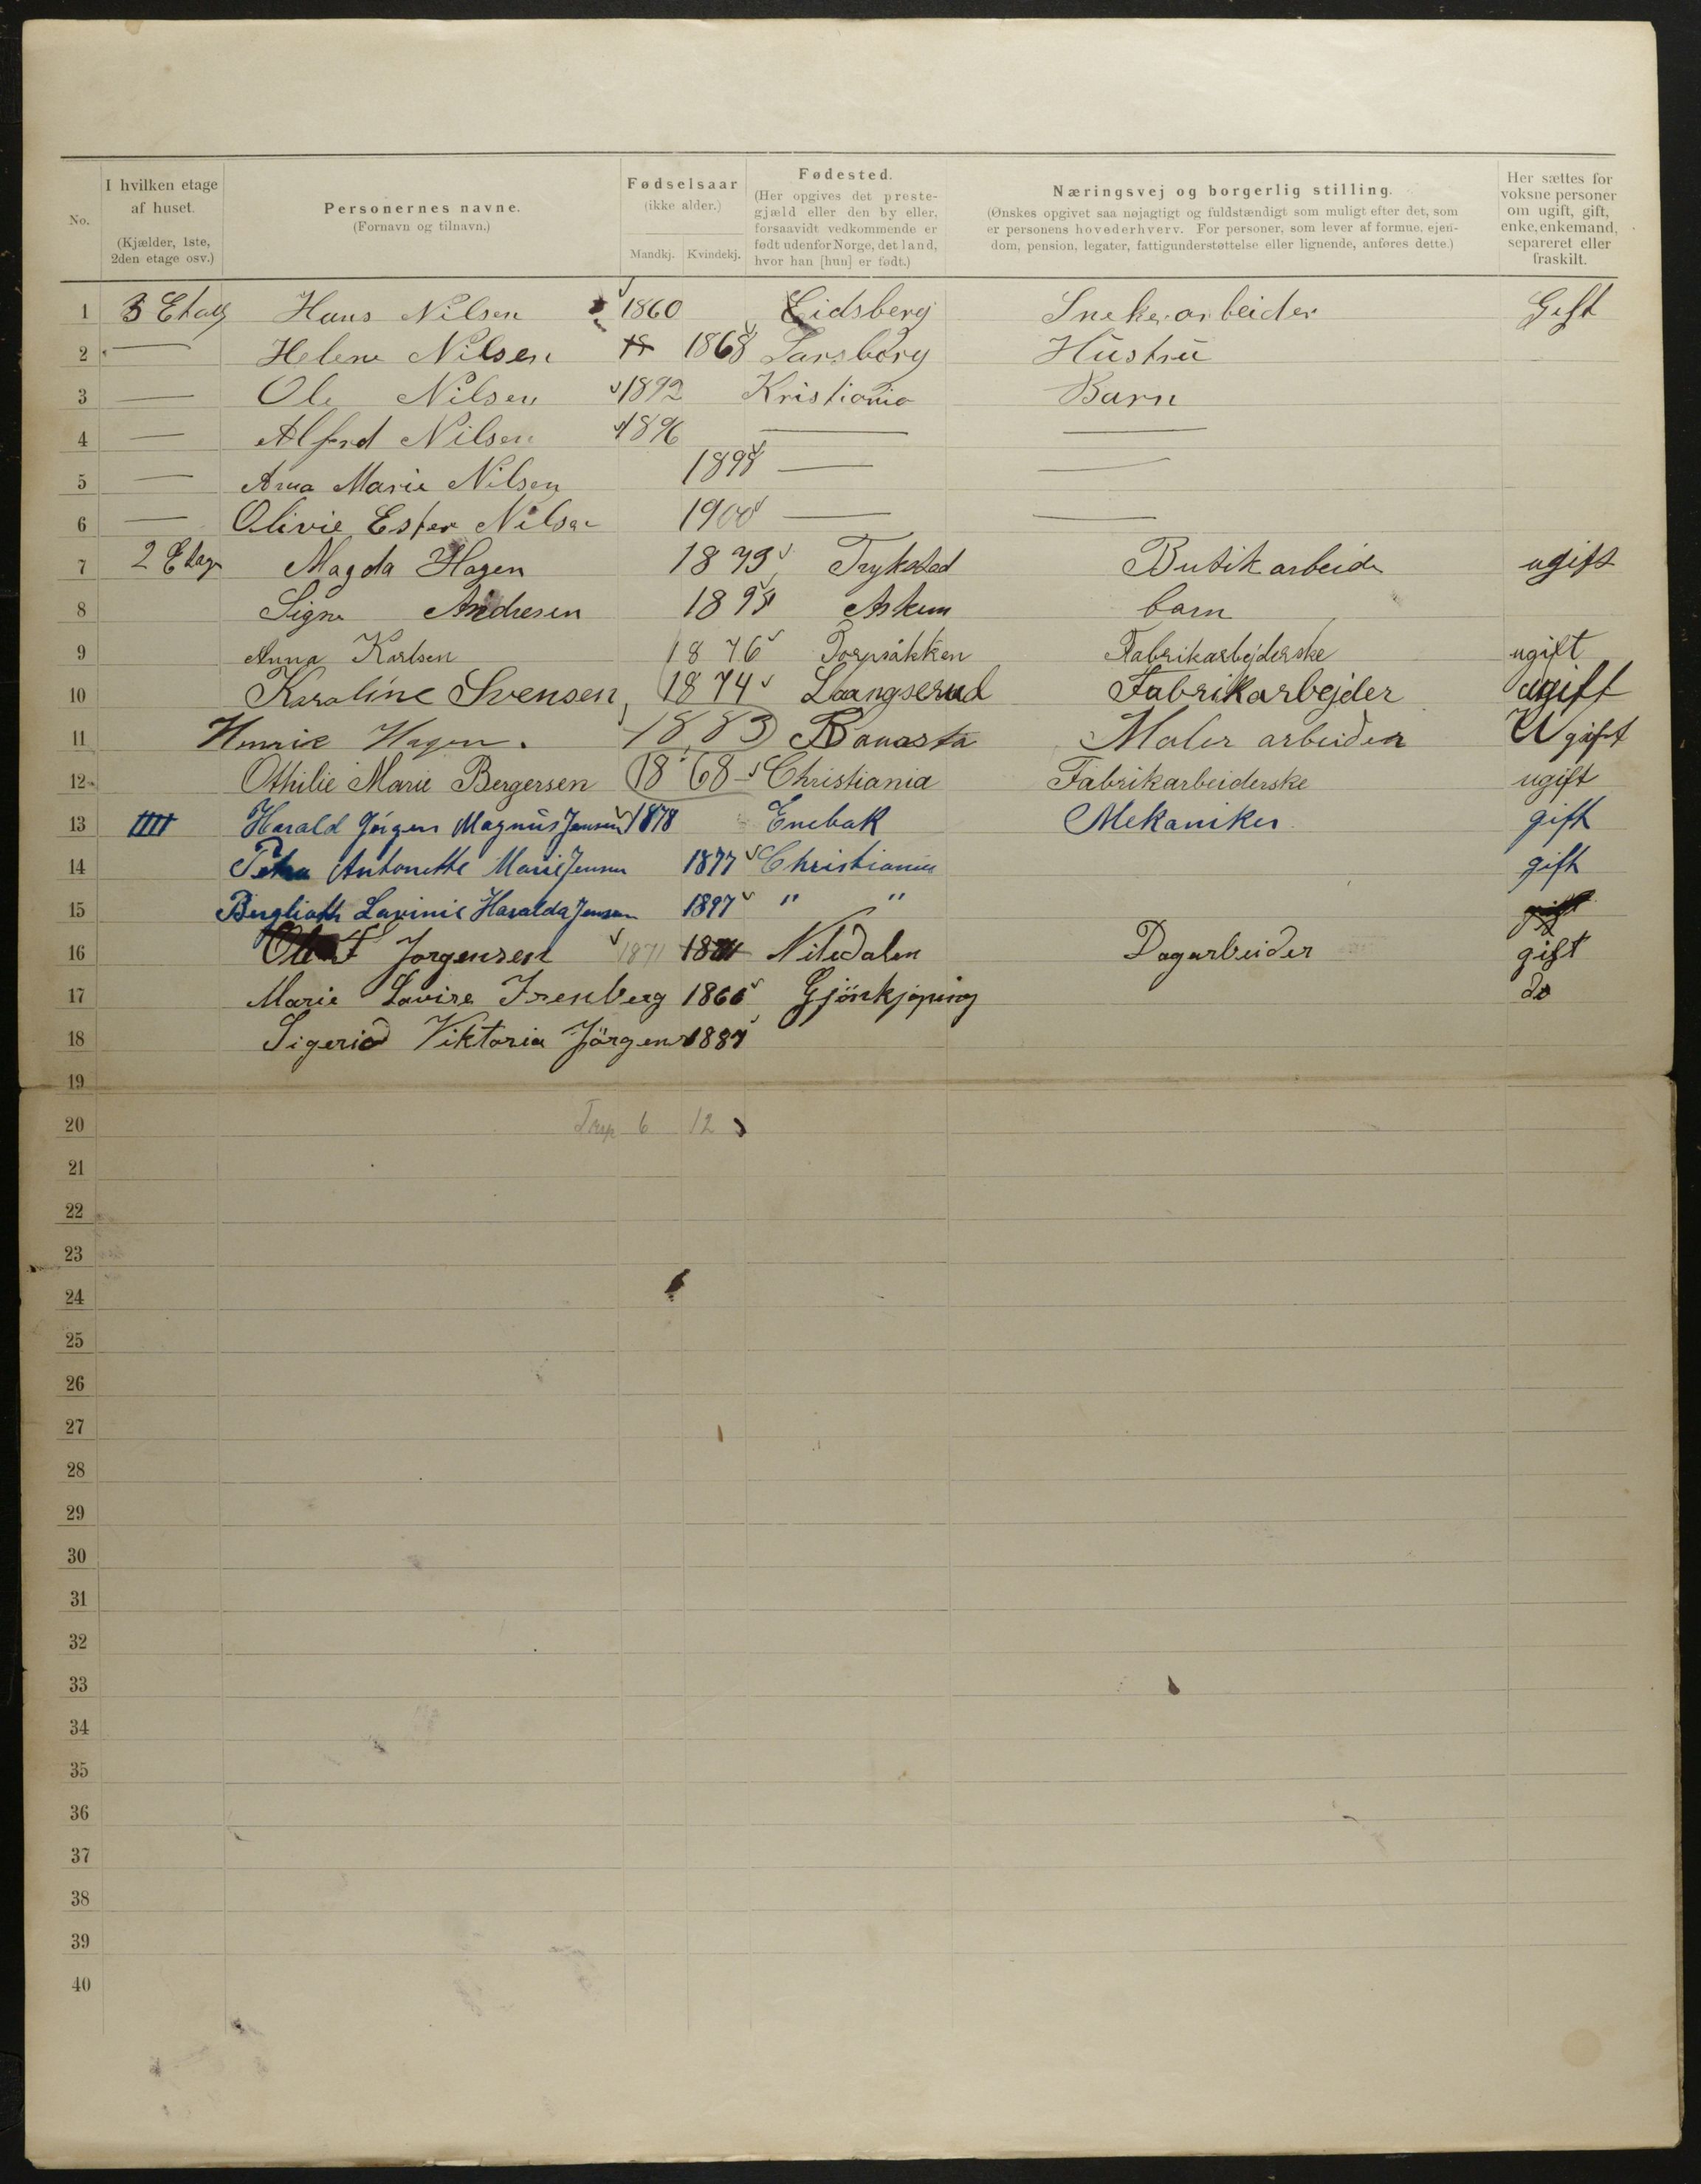 No.
I hvilken etage af huset.
(Kjælder, 1ste, 2den etage osv.)
Personernes navne.
(Fornavn og tilnavn.)
Fødselsaar
(ikke alder.)
Mandkj. Kvindekj.
Fødested.
(Her opgives det preste-
gjæld eller den by eller,
forsaavidt vedkommende er
født udenfor Norge, det land,
hvor han [hun] er født.)
Næringsvej og borgerlig stilling.
(Ønskes opgivet saa nøjagtigt og fuldstændigt som muligt efter det, som
er personens hovederhverv. For personer, som lever af formue, ejen-
dom, pension, legater, fattigunderstøttelse eller lignende, anføres dette.)
Her sættes for
voksne personer
om ugift, gift,
enke, enkemand,
separeret eller
fraskilt.
1 3 Etag Hans Nilsen 1860 Eidsberg Snekerarbeider Gift
2 — Helene Nilsen 18 1868 Sarsborg Hustru
3 — Ole Nilsen 1892 Kristiania Barn
4 — Alfred Nilsen 1896 — —
5 — Anna Marie Nilsen 1898 — —
6 — Olivie Ester Nilsen 1900 — —
7 2 Etage Magda Hagen 1879 Trykstad Butikarbeide ugift
8 Signe Andresen 1898 Askim barn
9 Anna Karlsen 1876 Fabrikarbejderske ugift
10 Karoline Svensen 1874 Laangserud Fabrikarbejder ugift
11 Henrik Hagen. 1883 Maler arbeider Ugift
12 Othilie Marie Bergersen 1868 Christiania Fabrikarbeiderske ugift
13 IIII Harald Jörgen Magnus Jensen 1878 Enebak Mekaniker gift
14 Petra Antonette Marie Jensen 1877 Christiania gift
15 Berglioth Lavinie Haralda Jensen 1897 " " gift
16 Jorgensen 1871 1871 Nitedalen Dagarbeider gift
17 Marie Lovise Frenberg 1866 Gjönkjöping do
18 Sigeriod Viktoria Jörgens 1887
19
20 6 12
21
22
23
24
25
26
27
28
29
30
31
32
33
34
35
36
37
38
39
40